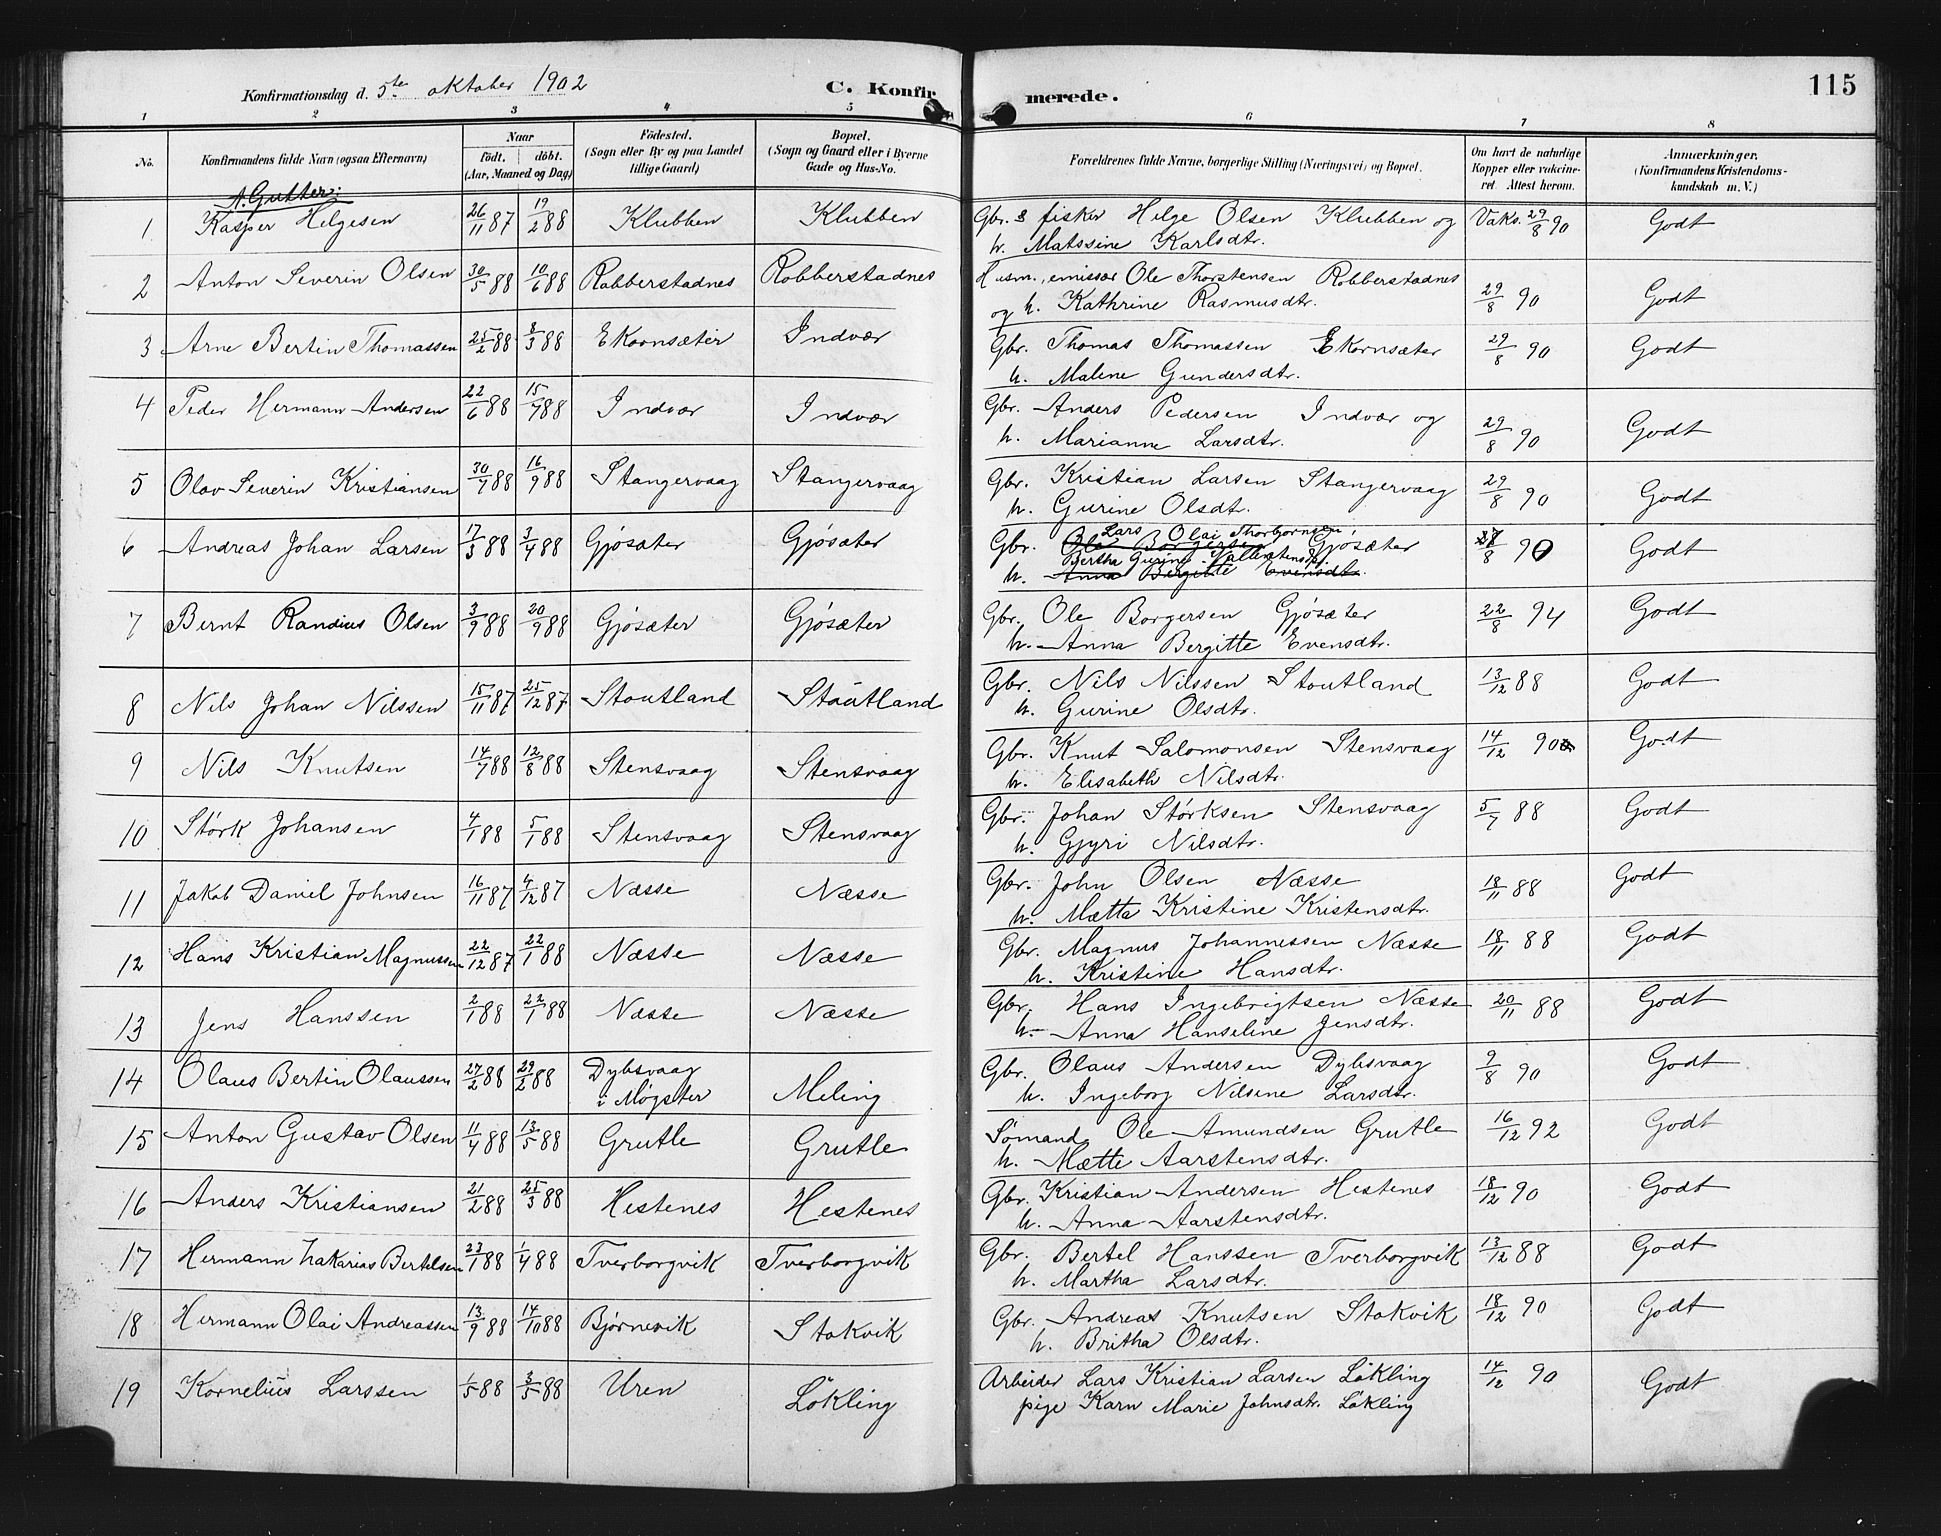 Konfirmationsdag d. 5te oktober 1902 C. Konfirmerede. 115
1 2 3 4 5 6 7 8
No. Konfirmandens fulde Navn (ogsaa Efternavn) Naar født. døbt. (Aar, Maaned og Dag) Fødested. (Sogn eller By og paa Landet tillige Gaard) Bopæl. (Sogn og Gaard eller i Byerne Gade og Hus-No. Forældrenes fulde Navne, borgerlige Stilling (Næringsvei) og Bopæl. Om havt de naturlige Kopper eller vakcineret. Attest herom. Anmærkninger. (Konfirmandens Kristendomskundskab m. V.)
A. Gutter:
1 Kasper Helgesen 26/11 87 19/2 88 Klubben Klubben Gbr. & fisker Helge Olsen Klubben og Vaks. 29/8 90 Godt
h. Matssine Karlsdtr.
2 Anton Severin Olsen 30/5 88 10/6 88 Robberstadnes Robberstadnes Husm., emissær Ole Thorstensen Robberstadnes 29/8 90 Godt
og h. Kathrine Rasmusdtr.
3 Arne Bertin Thomassen 25/2 88 8/3 88 Ekornsæter Indvær Gbr. Thomas Thomassen Ekornsæter 29/8 90 Godt
h. Malene Gundersdtr.
4 Peder Hermann Andersen 22/6 88 15/7 88 Indvær Indvær Gbr. Anders Pedersen Indvær og 29/8 90 Godt
h. Marianne Larsdtr.
5 Olav Severin Kristiansen 30/7 88 16/9 88 Stangervaag Stangervaag Gbr. Kristian Larsen Stangervaag 29/8 90 Godt
h. Gurine Olsdt.
6 Andreas Johan Larsen 17/3 88 3/4 88 Gjøsæter Gjøsæter Gbr. Lars Olai Thorbjornsen Gjøsæter /8 90 Godt
Ole Borgersen
Bertha Gurine
h. Anna Bergitte Evensdt.
7 Bernt Randius Olsen 3/9 88 20/9 88 Gjøsæter Gjøsæter Gbr. Ole Borgersen Gjøsæter 22/8 94 Godt
h. Anna Bergitte Evensdtr.
8 Nils Johan Nilssen 15/11 87 25/12 87 Stoutland Stoutland Gbr. Nils Nilssen Stoutland 13/12 88 Godt
h. Gurine Olsdtr.
9 Nils Knutsen 14/7 88 12/8 88 Stensvaag Stensvaag Gbr. Knut Salomonsen Stensvaag 14/12 90 Godt
h. Elisabeth Nilsdtr.
10 Størk Johansen 4/1 88 5/1 88 Stensvaag Stensvaag Gbr. Johan Størksen Stensvaag 5/7 88 Godt
h. Gjyri Nilsdtr.
11 Jakob Daniel Johnsen 16/11 87 4/12 87 Næsse Næsse Gbr. John Olsen Næsse 18/11 88 Godt
h. Mætta Kristine Kristensdtr.
12 Hans Kristian Magnussen 22/12 87 22/1 88 Næsse Næsse Gbr. Magnus Johannessen Næsse 18/11 88 Godt
h. Kristine Hansdtr.
13 Jens Hanssen 2/1 88 22/1 88 Næsse Næsse Gbr. Hans Ingebrigtsen Næsse 20/11 88 Godt
h. Anna Hanseline Jensdtr.
14 Olaus Bertin Olaussen 27/2 88 29/2 88 Dybsvaag i Møgster Meling Gbr. Olaus Andersen Dybsvaag 9/8 90 Godt
h. Ingeborg Nilsine Larsdtr.
15 Anton Gustav Olsen 11/4 88 13/5 88 Grutle Grutle Sømand Ole Amundsen Grutle 16/12 92 Godt
h. Mætte Aarstensdtr.
16 Anders Kristiansen 21/2 88 25/3 88 Hestenes Hestenes Gbr. Kristian Andersen Hestenes 18/12 90 Godt
h. Anna Aarstensdtr.
17 Hermann Zakarias Bertelsen 23/1 88 1/4 88 Tverborgvik Tverborgvik Gbr. Bertel Hanssen Tverborgvik 13/12 88 Godt
h. Martha Larsdtr.
18 Hermann Olai Andreassen 13/9 88 14/10 88 Bjørnevik Stokvik Gbr. Andreas Knutsen Stokvik 18/12 90 Godt
h. Britha Olsdtr.
19 Kornelius Larssen 1/5 88 3/5 88 Uren Løkling Arbeider Lars Kristian Larsen Løkling 14/12 90 Godt
pige Karn Marie Johnsdtr. Løkling